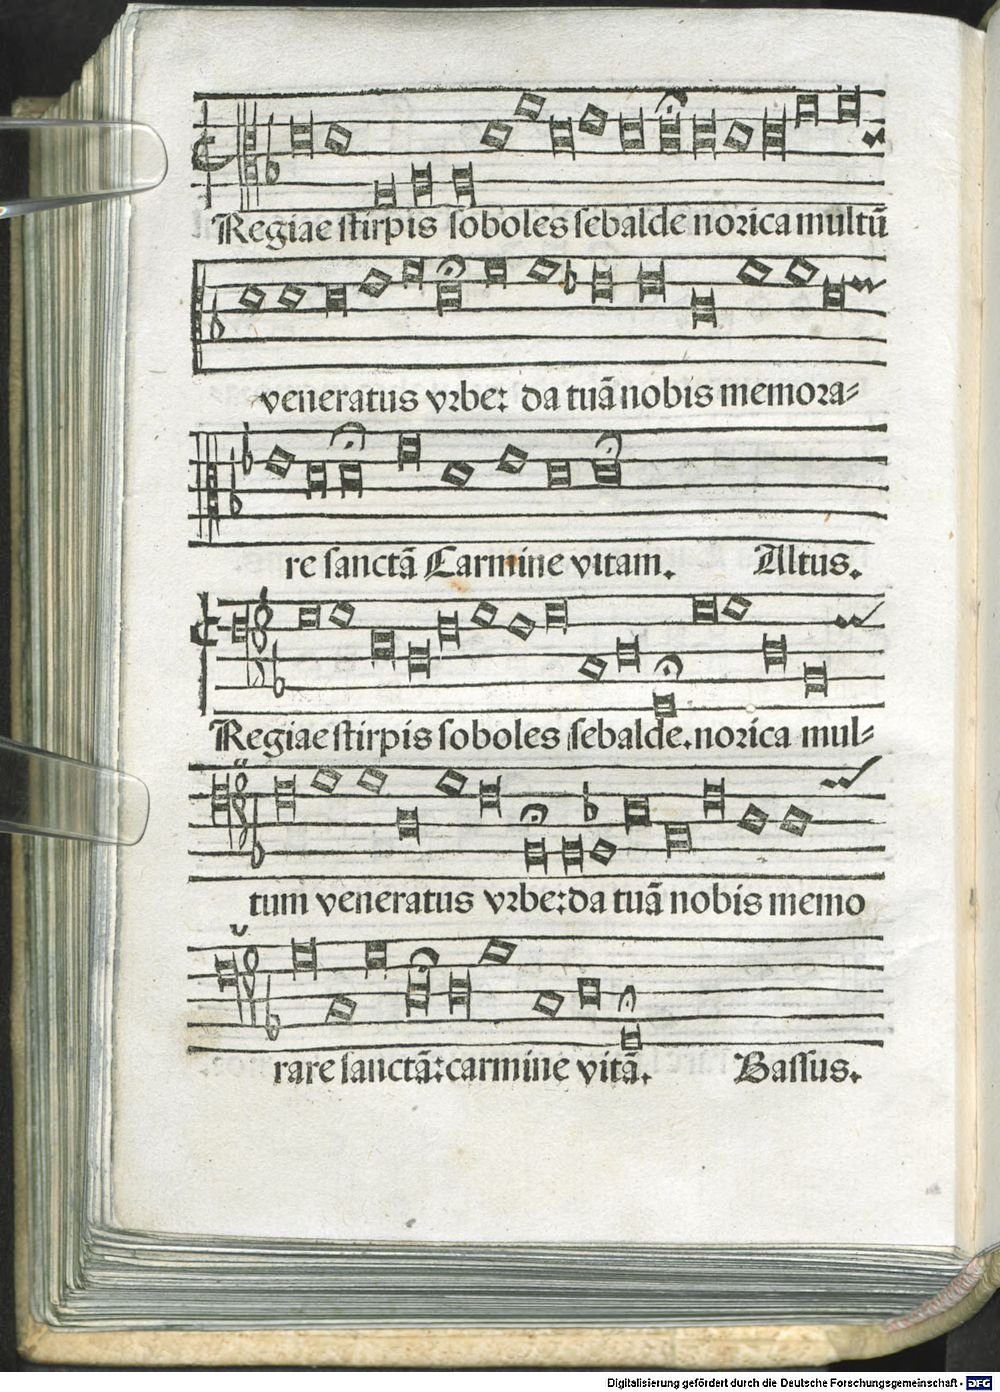 Regiae stirpis soboles sebalde norica multū
veneratus vrbe: da tuā nobis memora=
re sanctā Carmine vitam. Altus.
Regiae stirpis soboles sebalde. norica mul=
tum veneratus vrbe: da tuā nobis memo
rare sanctā: carmine vitā. Bassus.
Digitalisierung gefördert durch die Deutsche Forschungsgemeinschaft - DFG